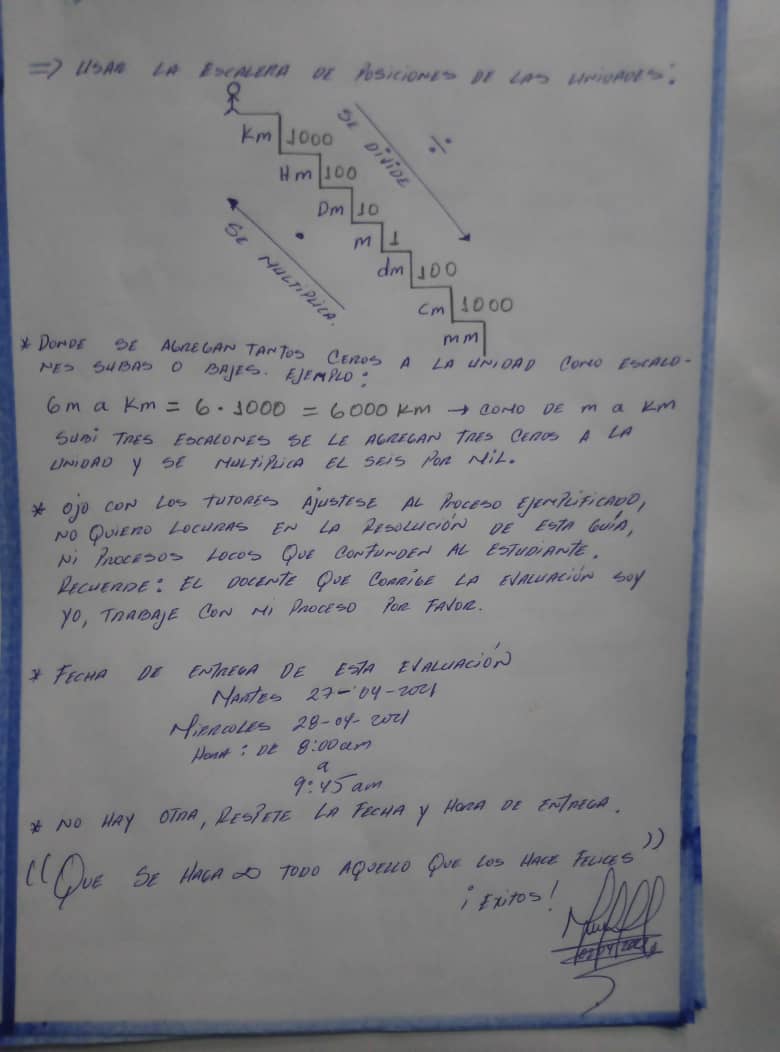 => USAR LA ESCALERA DE POSICIONES DE LAS UNIDADES:
Km 1000
Hm 100
Dm 10
m 1
dm 100
Cm 1000
mm
SE DIVIDE ÷
SE MULTIPLICA. •
* DONDE SE AGREGAN TANTOS CEROS A LA UNIDAD COMO ESCALO-
NES SUBAS O BAJES. EJEMPLO:
6m a Km = 6 • 1000 = 6000 Km → COMO DE m a Km
SUBI TRES ESCALONES SE LE AGREGAN TRES CEROS A LA
UNIDAD Y SE MULTIPLICA EL SEIS POR MIL.
* OJO CON LOS TUTORES AJUSTESE AL PROCESO EJEMPLIFICADO,
NO QUIERO LOCURAS EN LA RESOLUCIÓN DE ESTA GUÍA,
NI PROCESOS LOCOS QUE CONFUNDEN AL ESTUDIANTE.
RECUERDE: EL DOCENTE QUE CORRIGE LA EVALUACIÓN SOY
YO, TRABAJE CON MI PROCESO POR FAVOR.
* FECHA DE ENTREGA DE ESTA EVALUACIÓN
MARTES 27-04-2021
MIERCOLES 28-04-2021
HORA: DE 8:00am
a
9:45 am
* NO HAY OTRA, RESPETE LA FECHA Y HORA DE ENTREGA.
((QUE SE HAGA ∞ TODO AQUELLO QUE LOS HACE FELICES))
¡EXITOS!